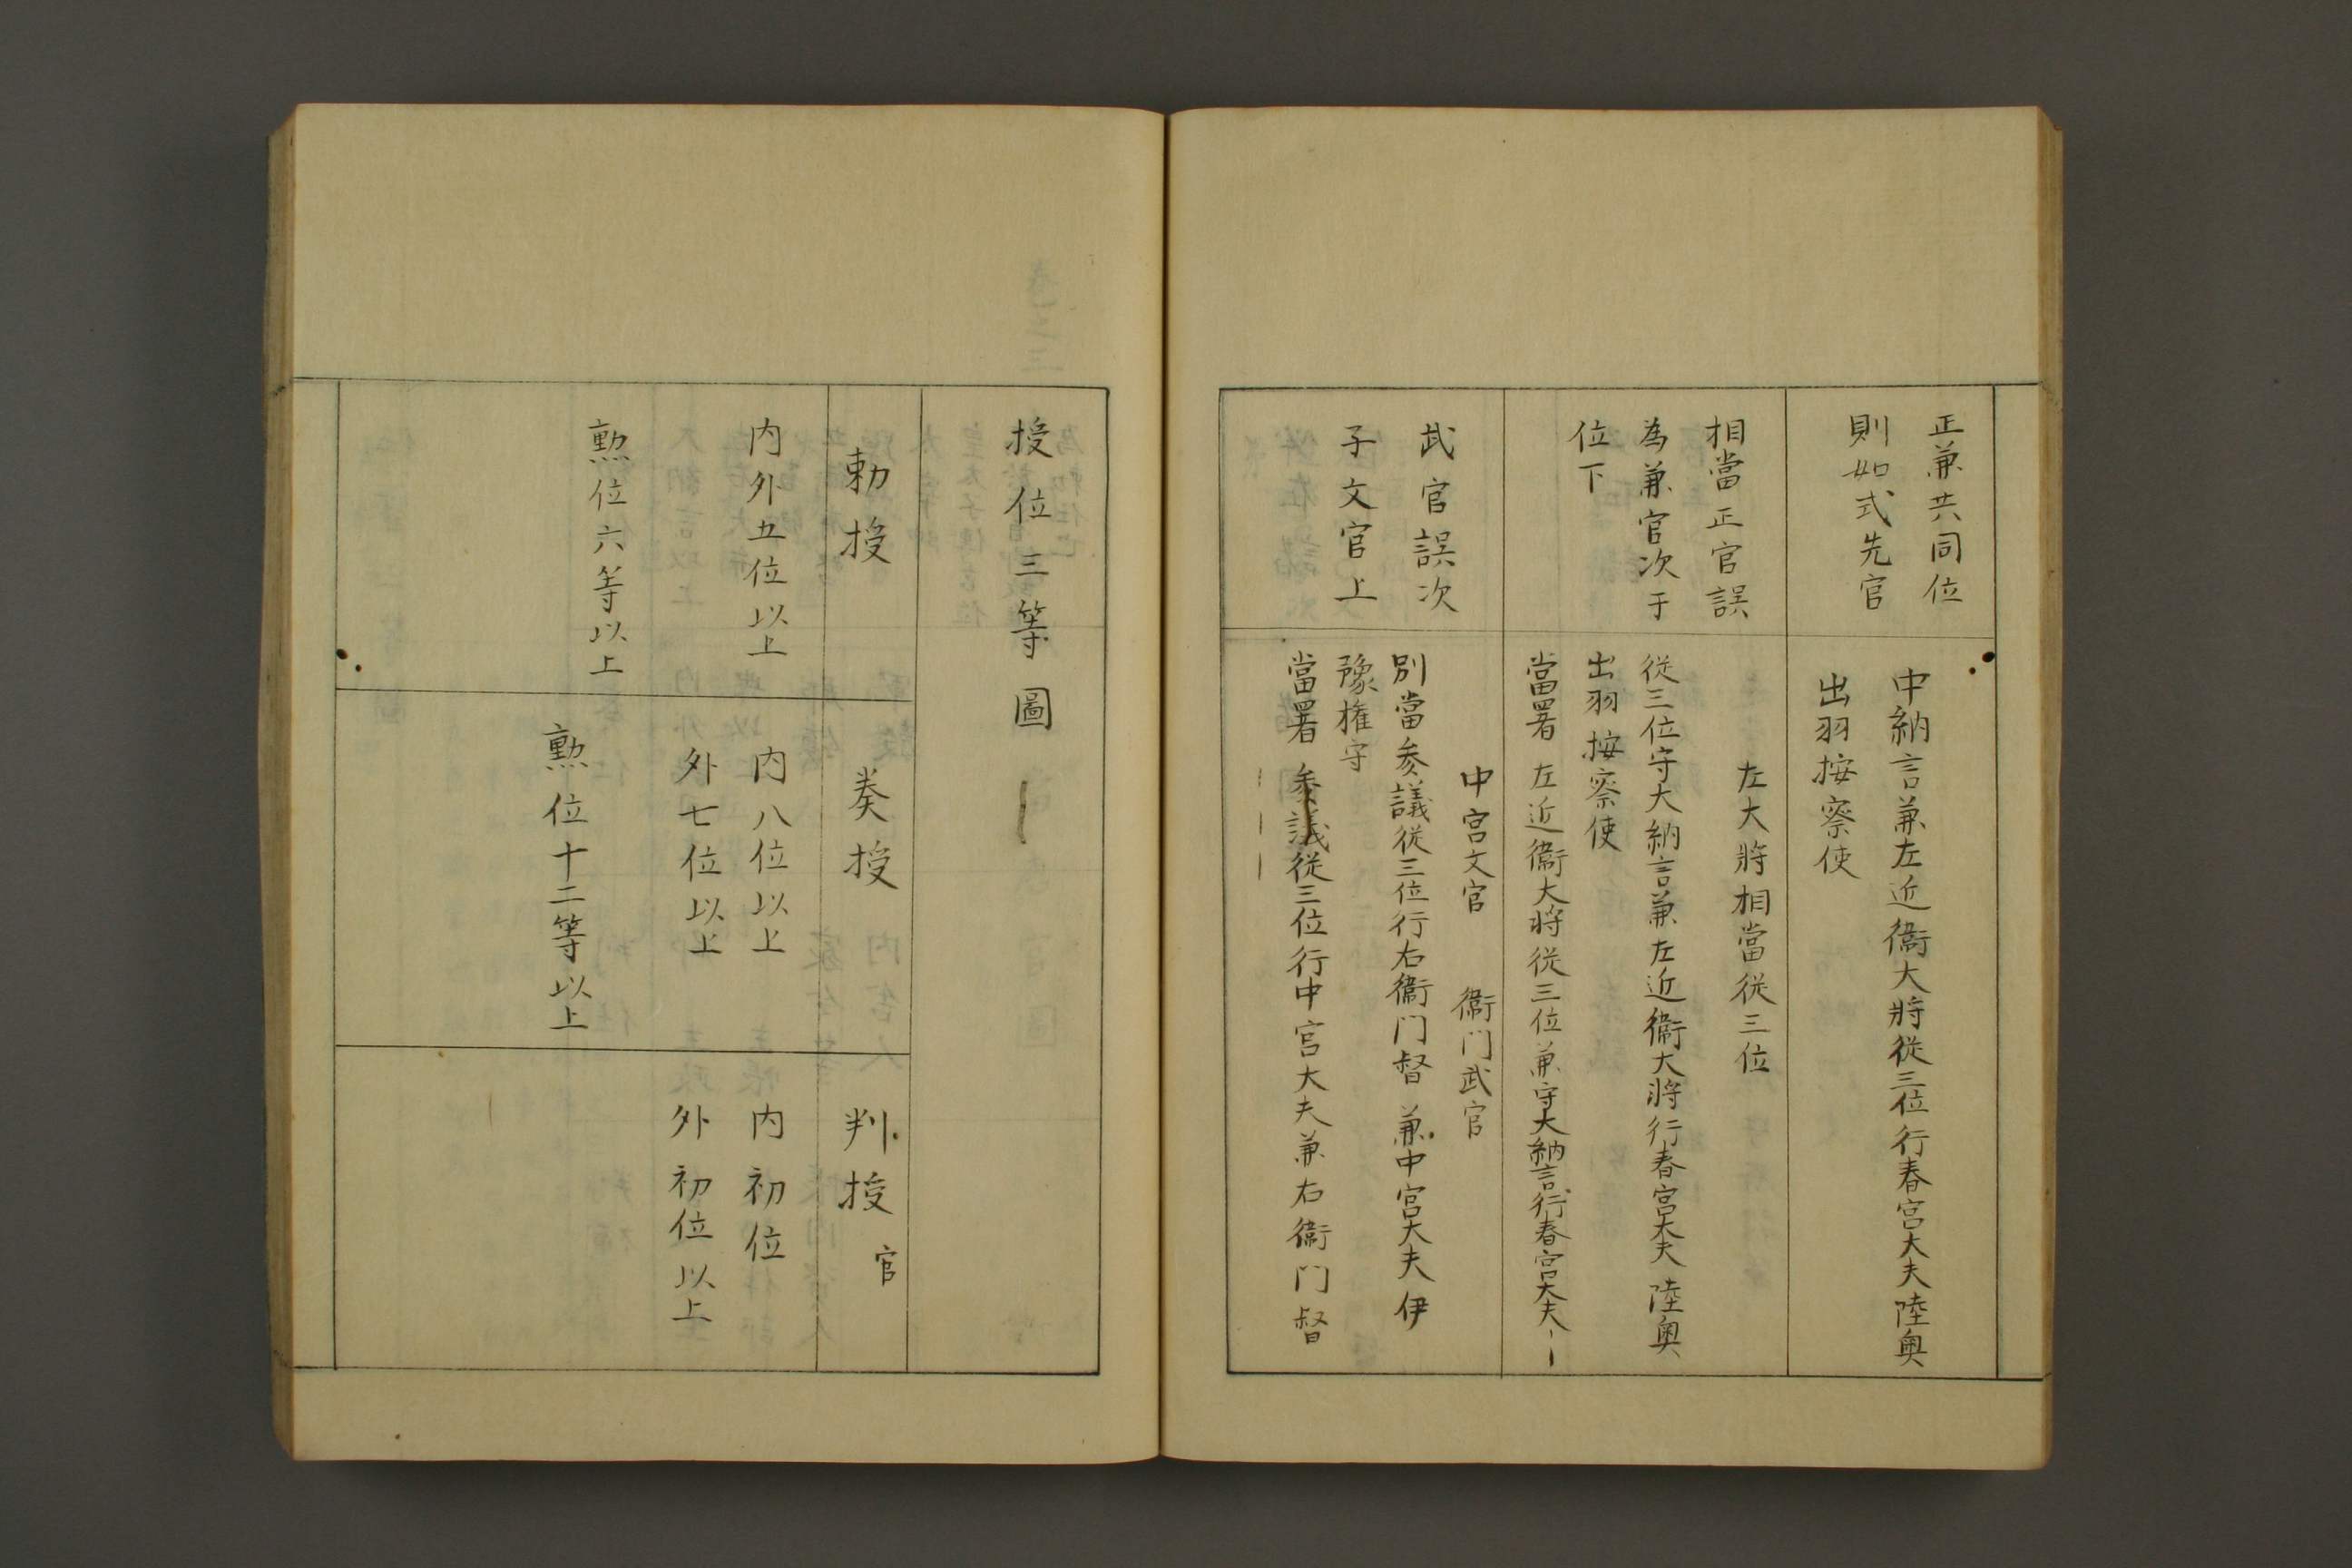 正兼共同位
則如式先官
中納言兼左近衞大將從三位行春宮大夫陸奧
出羽按察使
相當正官誤
為兼官次于
位下
左大將相當從三位
從三位守大納言兼左近衞大將行春宮大夫陸奧
出羽按察使
當署左近衞大將從三位兼守大納言行春宮大夫
武官誤次
子文官上
中宮文官 衞门武官
別當参議從三位行右衞门督兼中宮大夫伊
豫権守
當署参議從三位行中宮大夫兼右衞门督
授位三等圖
勅授
内外五位以上
勲位六等以上
奏授
内八位以上
外七位以上
勲位十二等以上
判授官
内初位
外初位以上